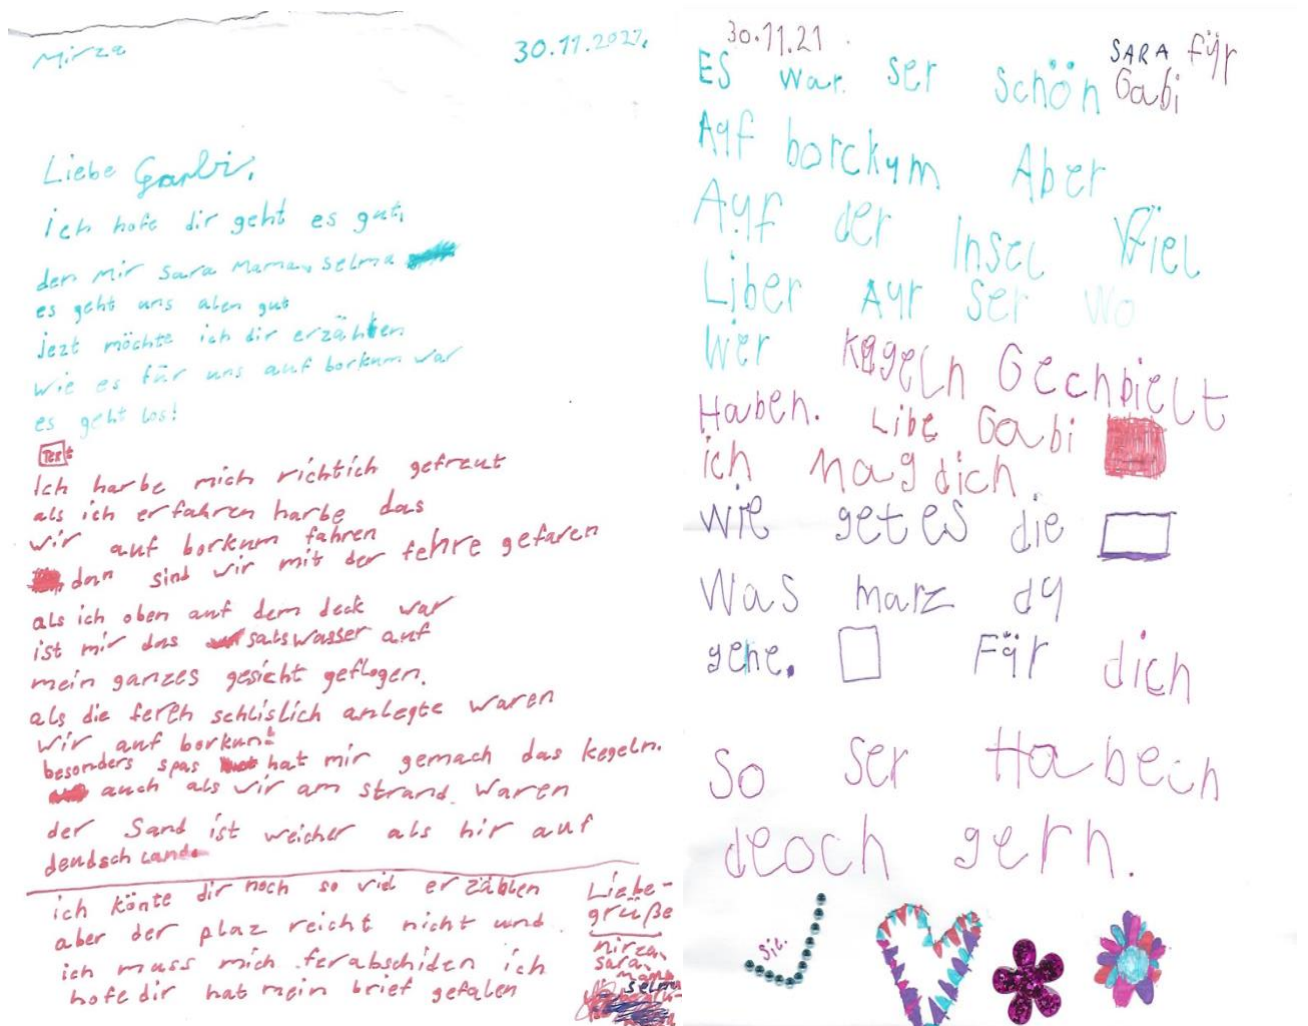 Mirza
30.11.2021.
Liebe Garbi,
ich hofe dir geht es gut,
den mir Sara Mama, Selma
es geht uns alen gut
jezt möchte ich dir erzählen
wie es für uns auf borkum war
es geht los!
Text
Ich harbe mich richtich gefreut
als ich erfahren harbe das
wir auf borkum fahren
dan sind wir mit der fehre gefaren
als ich oben auf dem deck war
ist mir das salswasser auf
mein ganzes gesicht geflogen.
als die fereh schlislich anlegte waren
wir auf borkum!
besonders spas hat mir gemach das kegeln.
auch als wir am strand waren
der Sand ist weicher als hir auf
deudschland.
ich könte dir noch so viel erzählen
aber der plaz reicht nicht und
ich muss mich ferabschiden ich
hofe dir hat mein brief gefalen
Liebe-
grüße
mirza,
sara,
mama
selma
30.11.21.
SARA für
Gabi
ES war. ser schön
Auf borckum Aber
Auf der Insel Viel
Liber Aur ser wo
wer kegeln Gechbielt
Haben. Libe Gabi
ich mag dich
wie getes die
Was marz du
gene. Für dich
So ser Habech
deoch gern.
Sie.